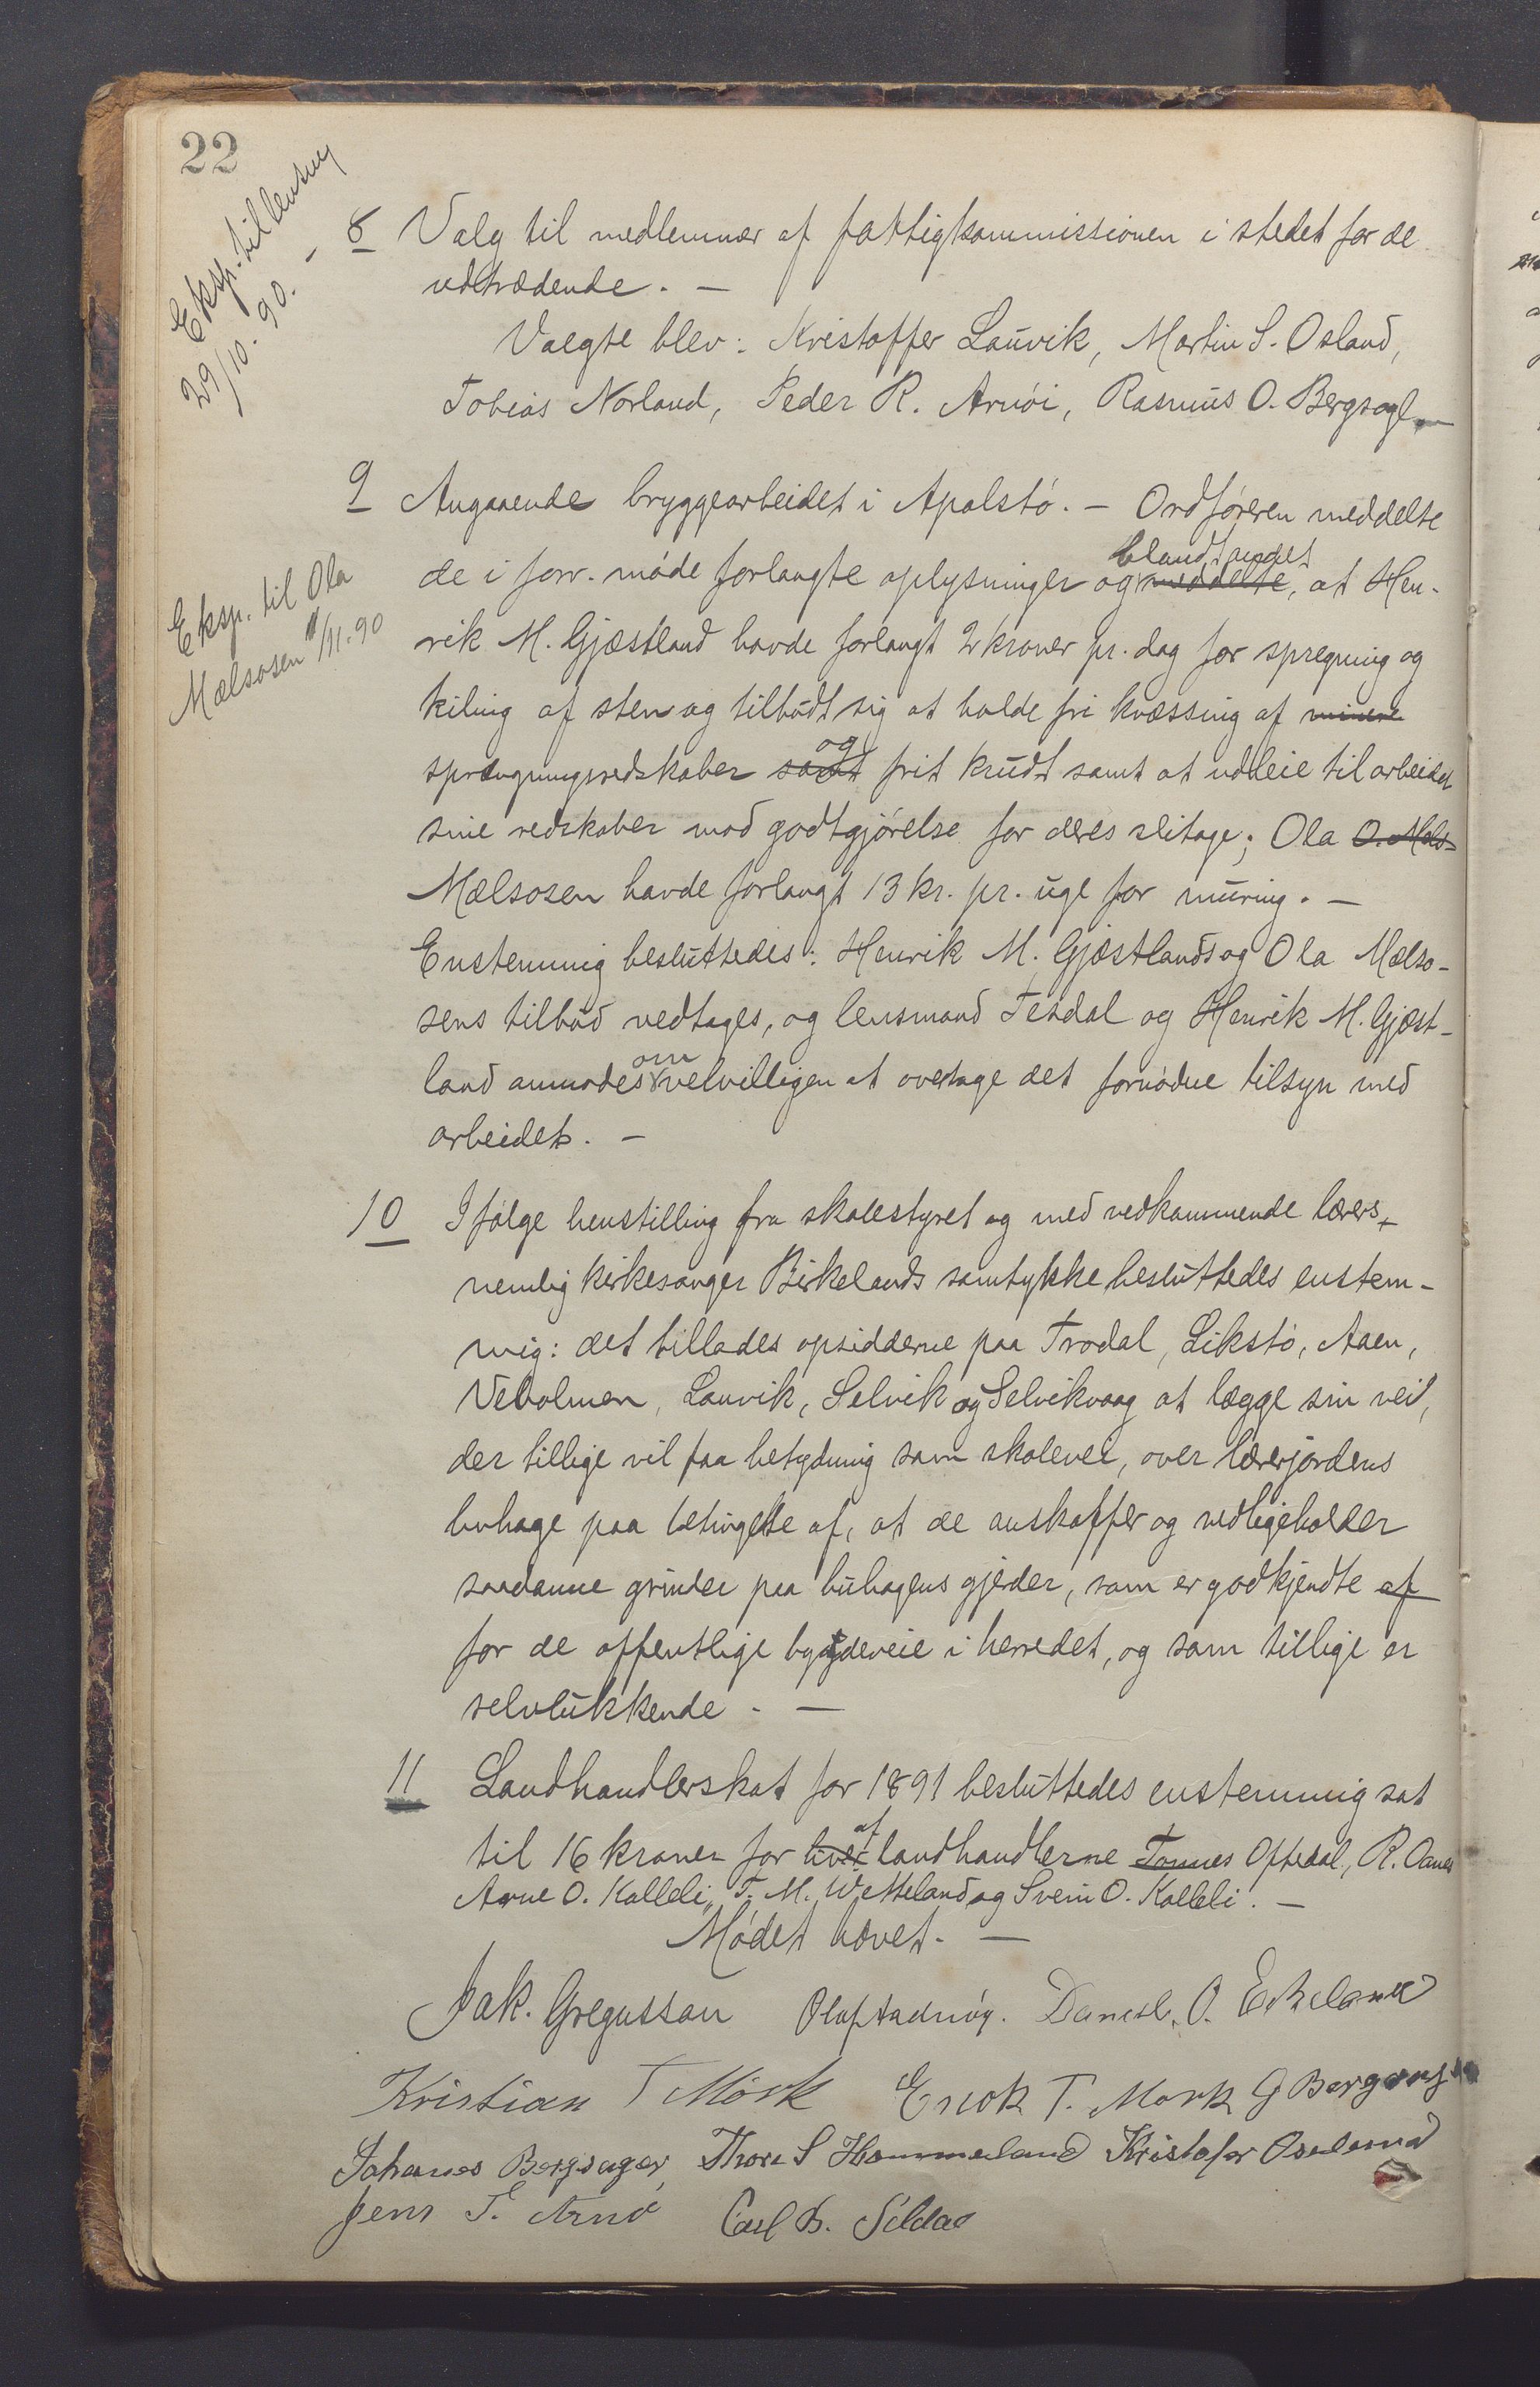 22
Eksp. til
29/10. 90. –
8 Valg til medlemmer af fattigkommissionen i stedet for de
udtrædende. –
Valgte blev: Kristoffer Lauvik, Martin S. Osland,
Tobias Norland, Peder R. Arnöi, Rasmus O. Bergsagl. –
9 Angaaende bryggearbeidet i Apalstö. – Ordföreren meddelte
blandt andet
de i forr. möde forlangte oplysninger og meddelte, at Hen-
Eksp. til Ola
Mælsosen /11.90
rik M. Gjæstland havde forlangt 2 kroner pr. dag for spregning og
kiling af sten og tilbödt sig at holde fri kvæssing af minere
og
sprængningsredskaber samt frit krudt samt at udleie til arbeidet
sine redskaber mod godtgjörelse for deres slitage; Ola O. Mels-
Mælsosen havde forlangt 13 kr. pr. uge for muring. –
Enstemmig besluttedes: Henrik M. Gjæstlands og Ola Mælso-
sens tilbud vedtages, og lensmand Tesdal og Henrik M. Gjæst-
om
land anmodes velvilligen at overtage det fornödne tilsyn med
arbeidet. –
10 Ifölge henstilling fra skolestyret og med vedkommende lærers,
nemlig kirkesanger Birkelands samtykke besluttedes enstem-
mig: det tillades opsidderne paa Trodal, Likstö, Aaen,
Veholmen, Lauvik, Selvik og Selvikvaag at lægge sin vei,
der tillige vil faa betydning som skolevei, over lærerjordens
buhage paa betingelse af, at de anskaffer og vedligeholder
saadanne grinder paa buhagens gjerder, som er godkjendte af
for de offentlige bygdeveie i herredet, og som tillige er
selvlukkende. –
11 Landhandlerskat for 1891 besluttedes enstemmig sat
af
til 16 kroner for hver landhandlerne Tonnes Oftedal, R. Oanes
Arne O. Kalleli, T. M. Wetteland og Svein O. Kalleli. –
Mödet hævet. –
Jak. Gregussan Olaf Daniel. O. Eikeland
Kristian T Mörk Enok T. Mörk G Bergsag
Johanes Bergsager, Thore S Hammerland Kristofer Oseland
Jens T. Arnö Carl B.